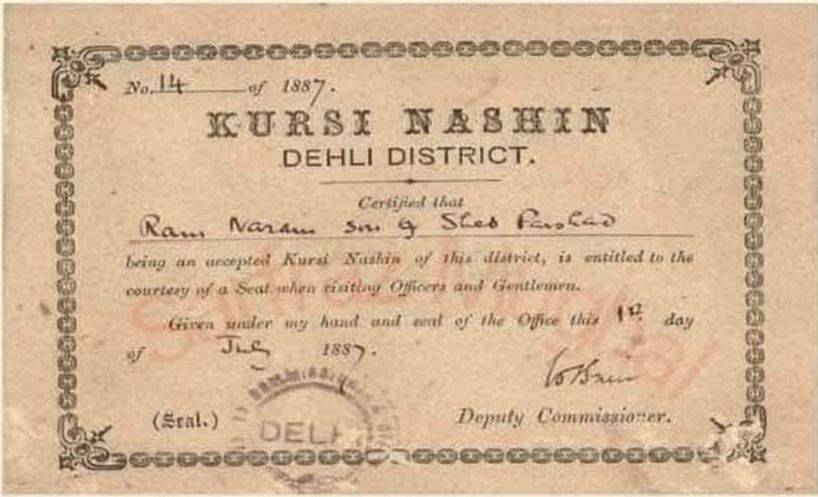 No. 14 of 1887.
KURSI NASHIN
DEHLI DISTRICT.
Certified that
Ram Narain son of Sheo Parshad
being an accepted Kursi Nashin of this district, is entitled to the
courtesy of a Seat when visiting Officers and Gentlemen.
Given under my hand and seal of the Office this 1st day
of July 1887.
(Seal.)
DELH
Deputy Commissioner.